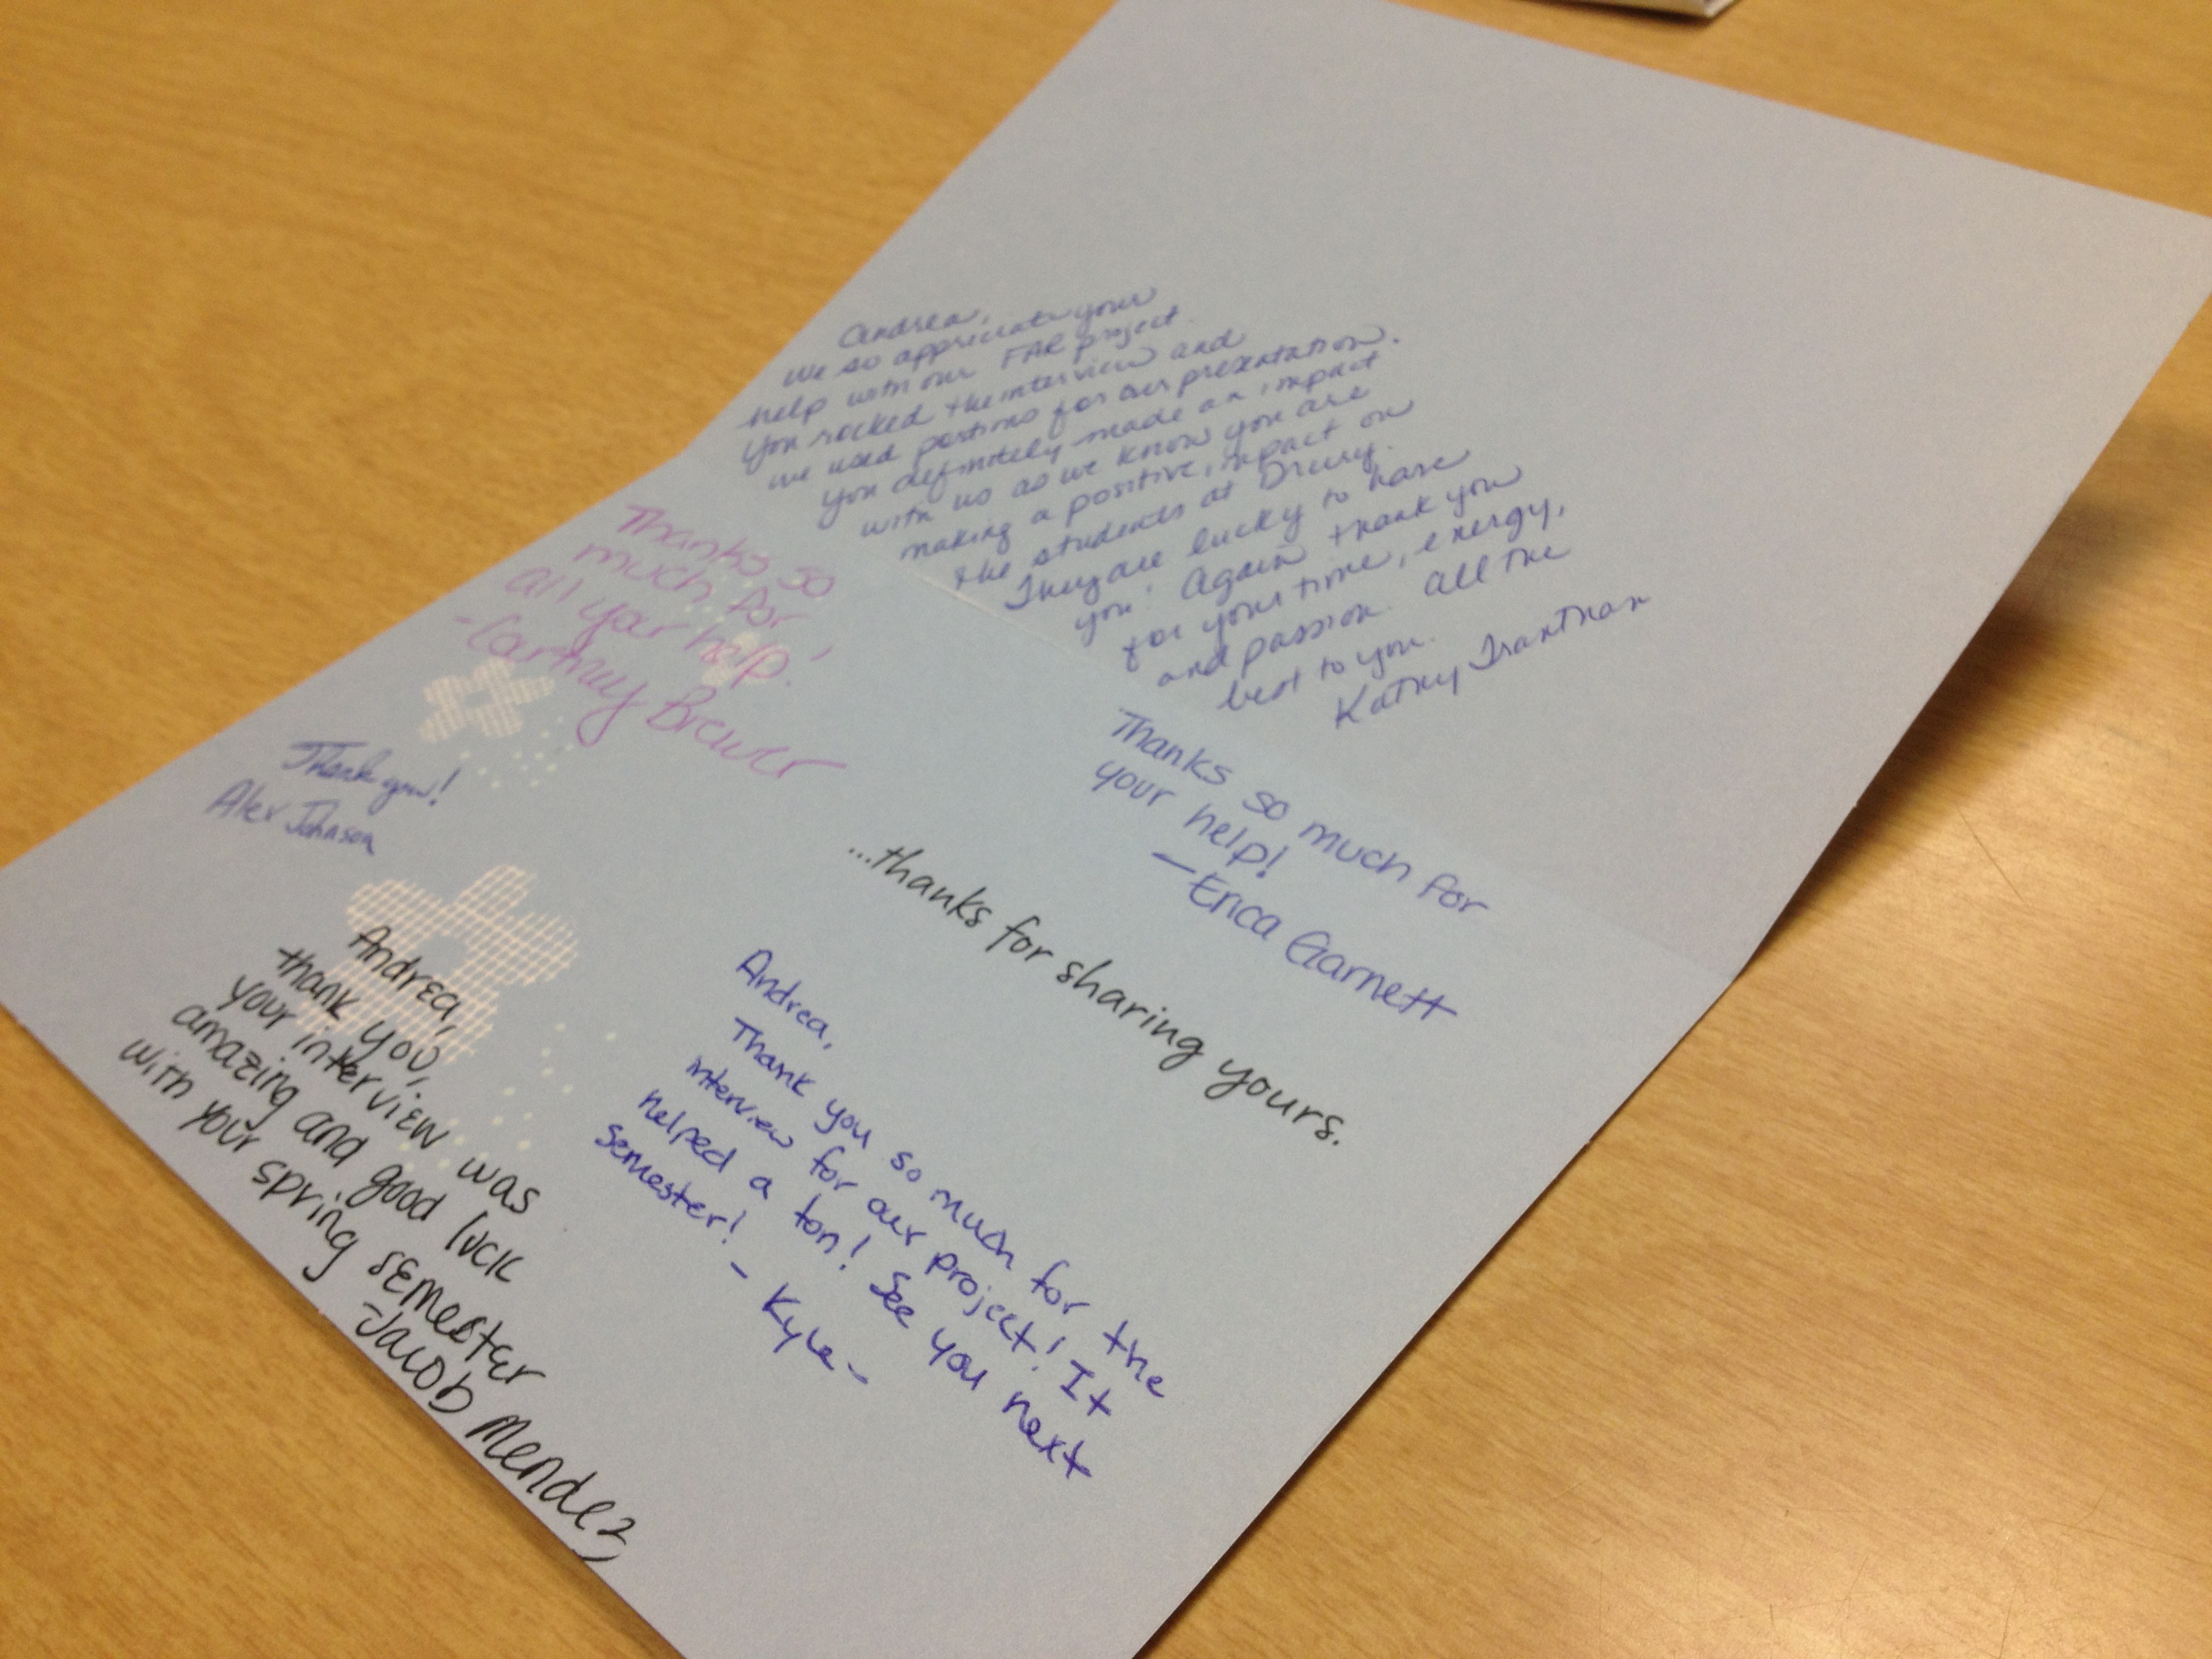 Andrea,
We so appreciate your
help with our FAR project.
You rocked the interview and
we used portions for our presentation.
You definitely made an impact
with us as we know you are
making a positive impact on
the students at Drury.
They are lucky to have
you! Again thank you
for your time, energy,
and passion. All the
best to you.
Kathy Tranthan
Thanks so
much for
all your help!
-Cortney Brewer
Thank you!
Alex Johnson
Thanks so much for
your help!
—Erica Garnett
...thanks for sharing yours.
Andrea,
thank you,
your interview was
amazing and good luck
with your spring semester
Jacob Mendez
Andrea,
Thank you so much for the
interview for our project! It
helped a ton! See you next
semester! - Kyle-